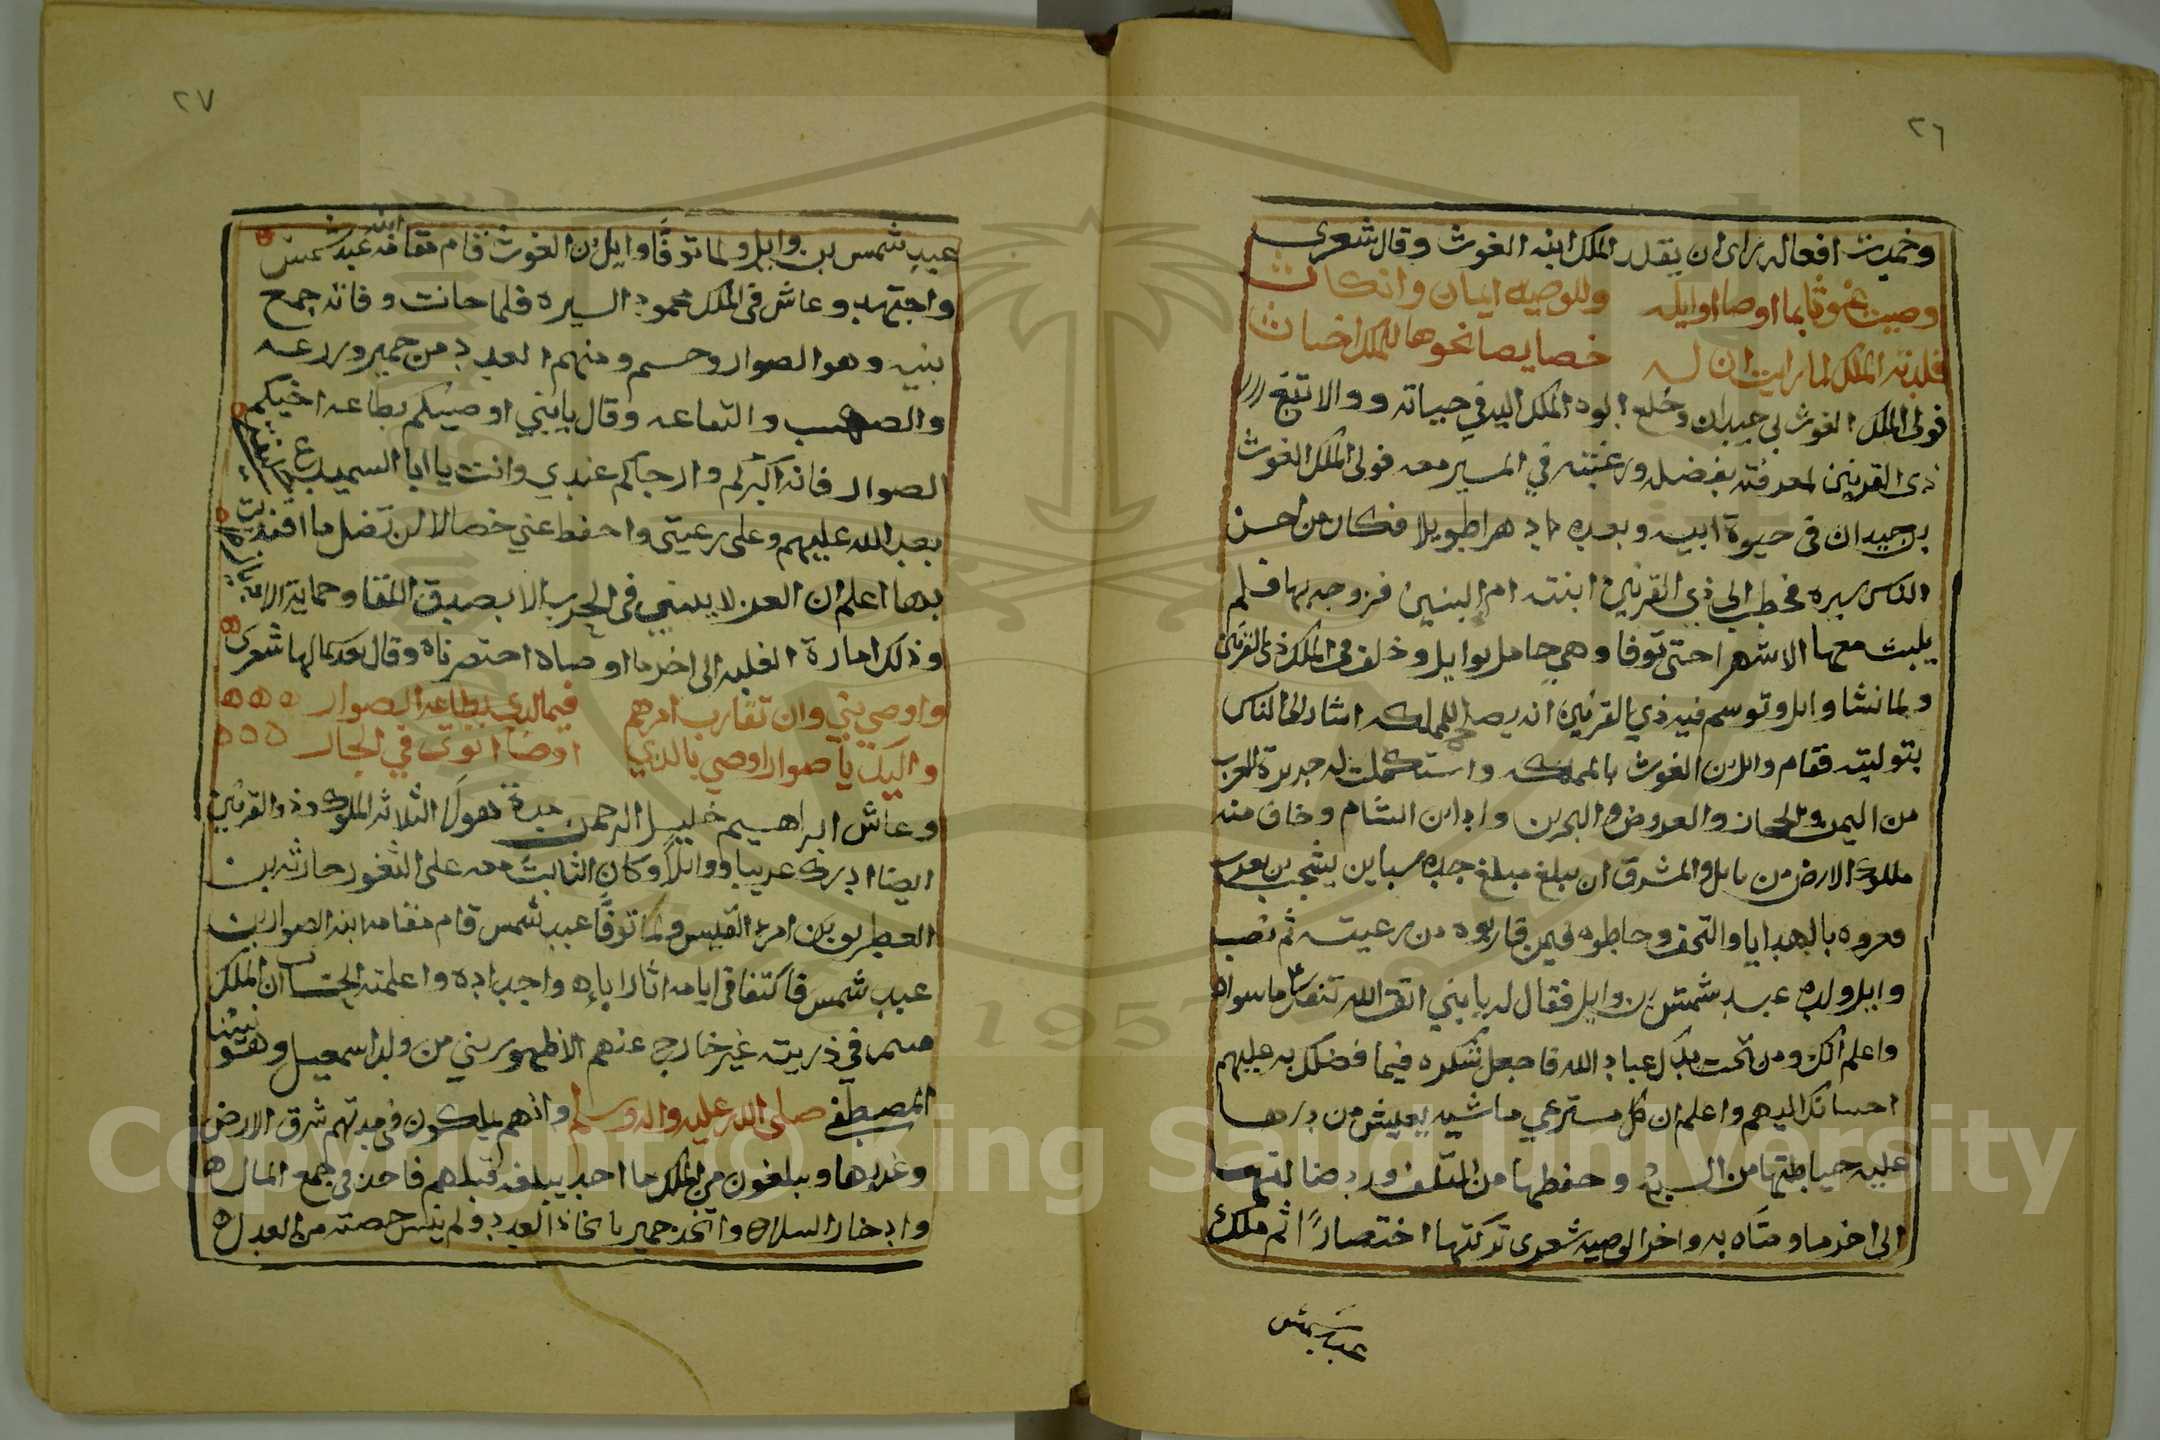 ٢٦
وحمدت افعاله راى ان يقلد الملك ابنه الغوث وقال شعرى
وصيت غوثا بما اوصا اوايله وللوصيه ايمان وانكات
قلدته الملك لما رايت ان له خصايصا نحوها للملك اخبات
فولى الملك الغوث بن جيدان وخلع ابوه الملك اليه في حياته ووالا تبع
ذى القرنين لمعرفته بفضله ورغبته في المسير معه فولى الملك الغوث
بن جيدان في حيوة ابيه وبعده دهرا طويلا فكان من احسن
الناس سيره فخطب الى ذي القرنين ابنته ام البنين فزوجه بها فلم
يلبث معها الا شهرا حتى توفا وهي حامل بوايل وخلف في الملك ذى القرنين
ولما نشا وايل وتوسم فيه ذي القرنين انه يصلح للمملكه اشار الى الناس
بتوليته فقام وايل بن الغوث بالمملكه واستكملت له جزيرة العرب
من اليمن والحجاز والعروض والبحرين وادانى الشام وخاف منه
ملوك الارض من بابل والمشرق ان يبلغ مبلغ جده سبا بن يشجب بن يعرب
فعروه بالهدايا والتحف وحاطوه فيمن قاربوه من رعيته ثم نصب
وايل ولده عبد شمس بن وايل فقال له يا بني اتق الله تتق ما سواه
واعلم انك ومن تحت يدك عباد الله فاجعل شكره فيما فضلك به عليهم
احسانك اليهم واعلم ان كل مسترعي ماشيه يعيش من درها
عليه حياطتها من السبع وحفظها من التلف ورد ضالتها
الى اخر ما وصاه به واخر الوصيه شعرى تركتها اختصارًا ثم ملك
عبد شمس
٢٧
عبد شمس بن وايل ولما توفا وايل بن الغوث قام مقامه ابنه عبد شمس
واجتهد وعاش في الملك محمود السيره فلما حانت وفاته جمع
بنيه وهو الصوار وحسم ومنهم العدد من حمير وزرعه
والصهيب والتعاعه وقال يا بني اوصيكم بطاعه اخيكم
الصوار فانه اكبركم وارجاكم عندي وانت يا ابا السميدع
بعد الله عليهم وعلى رعيتى واحفظ عني خصالا لن تضل ما اقتديت
بها اعلم ان العز لا يبنى في الحرب الا بصدق اللقا وحماية
وذلك امارة الغلبه الى اخر ما اوصاه اختصرناه وقال بعد كمالها شعرى
واوصي بني وان تقارب امرهم فيما لدى بطاعه الصوار
واليك يا صوار اوصي بالذي اوصا ابوي في الجار
وعاش ابراهيم خليل الرحمن مدة هولا الثلاثه الملوك وذو القرنين
ايضا ادرك عريبا ووايلا وكان الثابت معه على الثغور حارثه بن
الغطريف بن امرء القيس ولما توفا عبد شمس قام مقامه ابنه الصوار بن
عبد شمس فاكتفا في ايامه اثار ابائه واجداده واعلمته الحساب ان الملك
مستمر في ذريته غير خارج عنهم الا ظهور بني من ولد اسمعيل وهو نبينا
المصطفى صلى الله عليه واله وسلم وانهم يملكون في مدتهم شرق الارض
وغربها ويبلغون من الملك ما احد يبلغه قبلهم فاخذ في جمع المال
وادخار السلاح واتخذ حمير باتخاذ العدد ولم ينس حصته من العدل